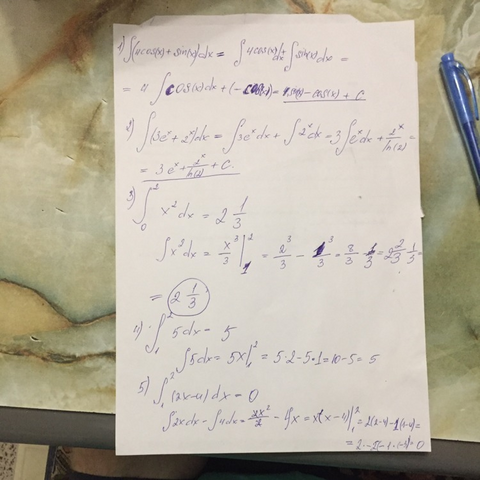 1) ∫(4cos(x)+sin(x))dx = ∫4cos(x)dx+∫sin(x)dx =
= 4 ∫cos(x)dx+(-cos(x))= 4sin(x)-cos(x)+C
2) ∫(3e^x+2^x)dx = ∫3e^x dx+∫2^x dx=3∫e^x dx+2^x/ln(2)=
= 3e^x+2^x/ln(2)+C.
3) ∫_0^2 x^2 dx = 2 1/3
∫x^2 dx = x^3/3 |_1^2 = 2^3/3 - 1^3/3 = 8/3 - 1/3 = 2 2/3 - 1/3 =
= 2 1/3
4) ∫_1^2 5dx = 5
∫5dx = 5x|_1^2 = 5·2-5·1=10-5=5
5) ∫_1^2 (2x-4)dx = 0
∫2xdx-∫4dx= -4x = x(x-4)|_1^2 =2(2-4)-1(1-4)=
=0